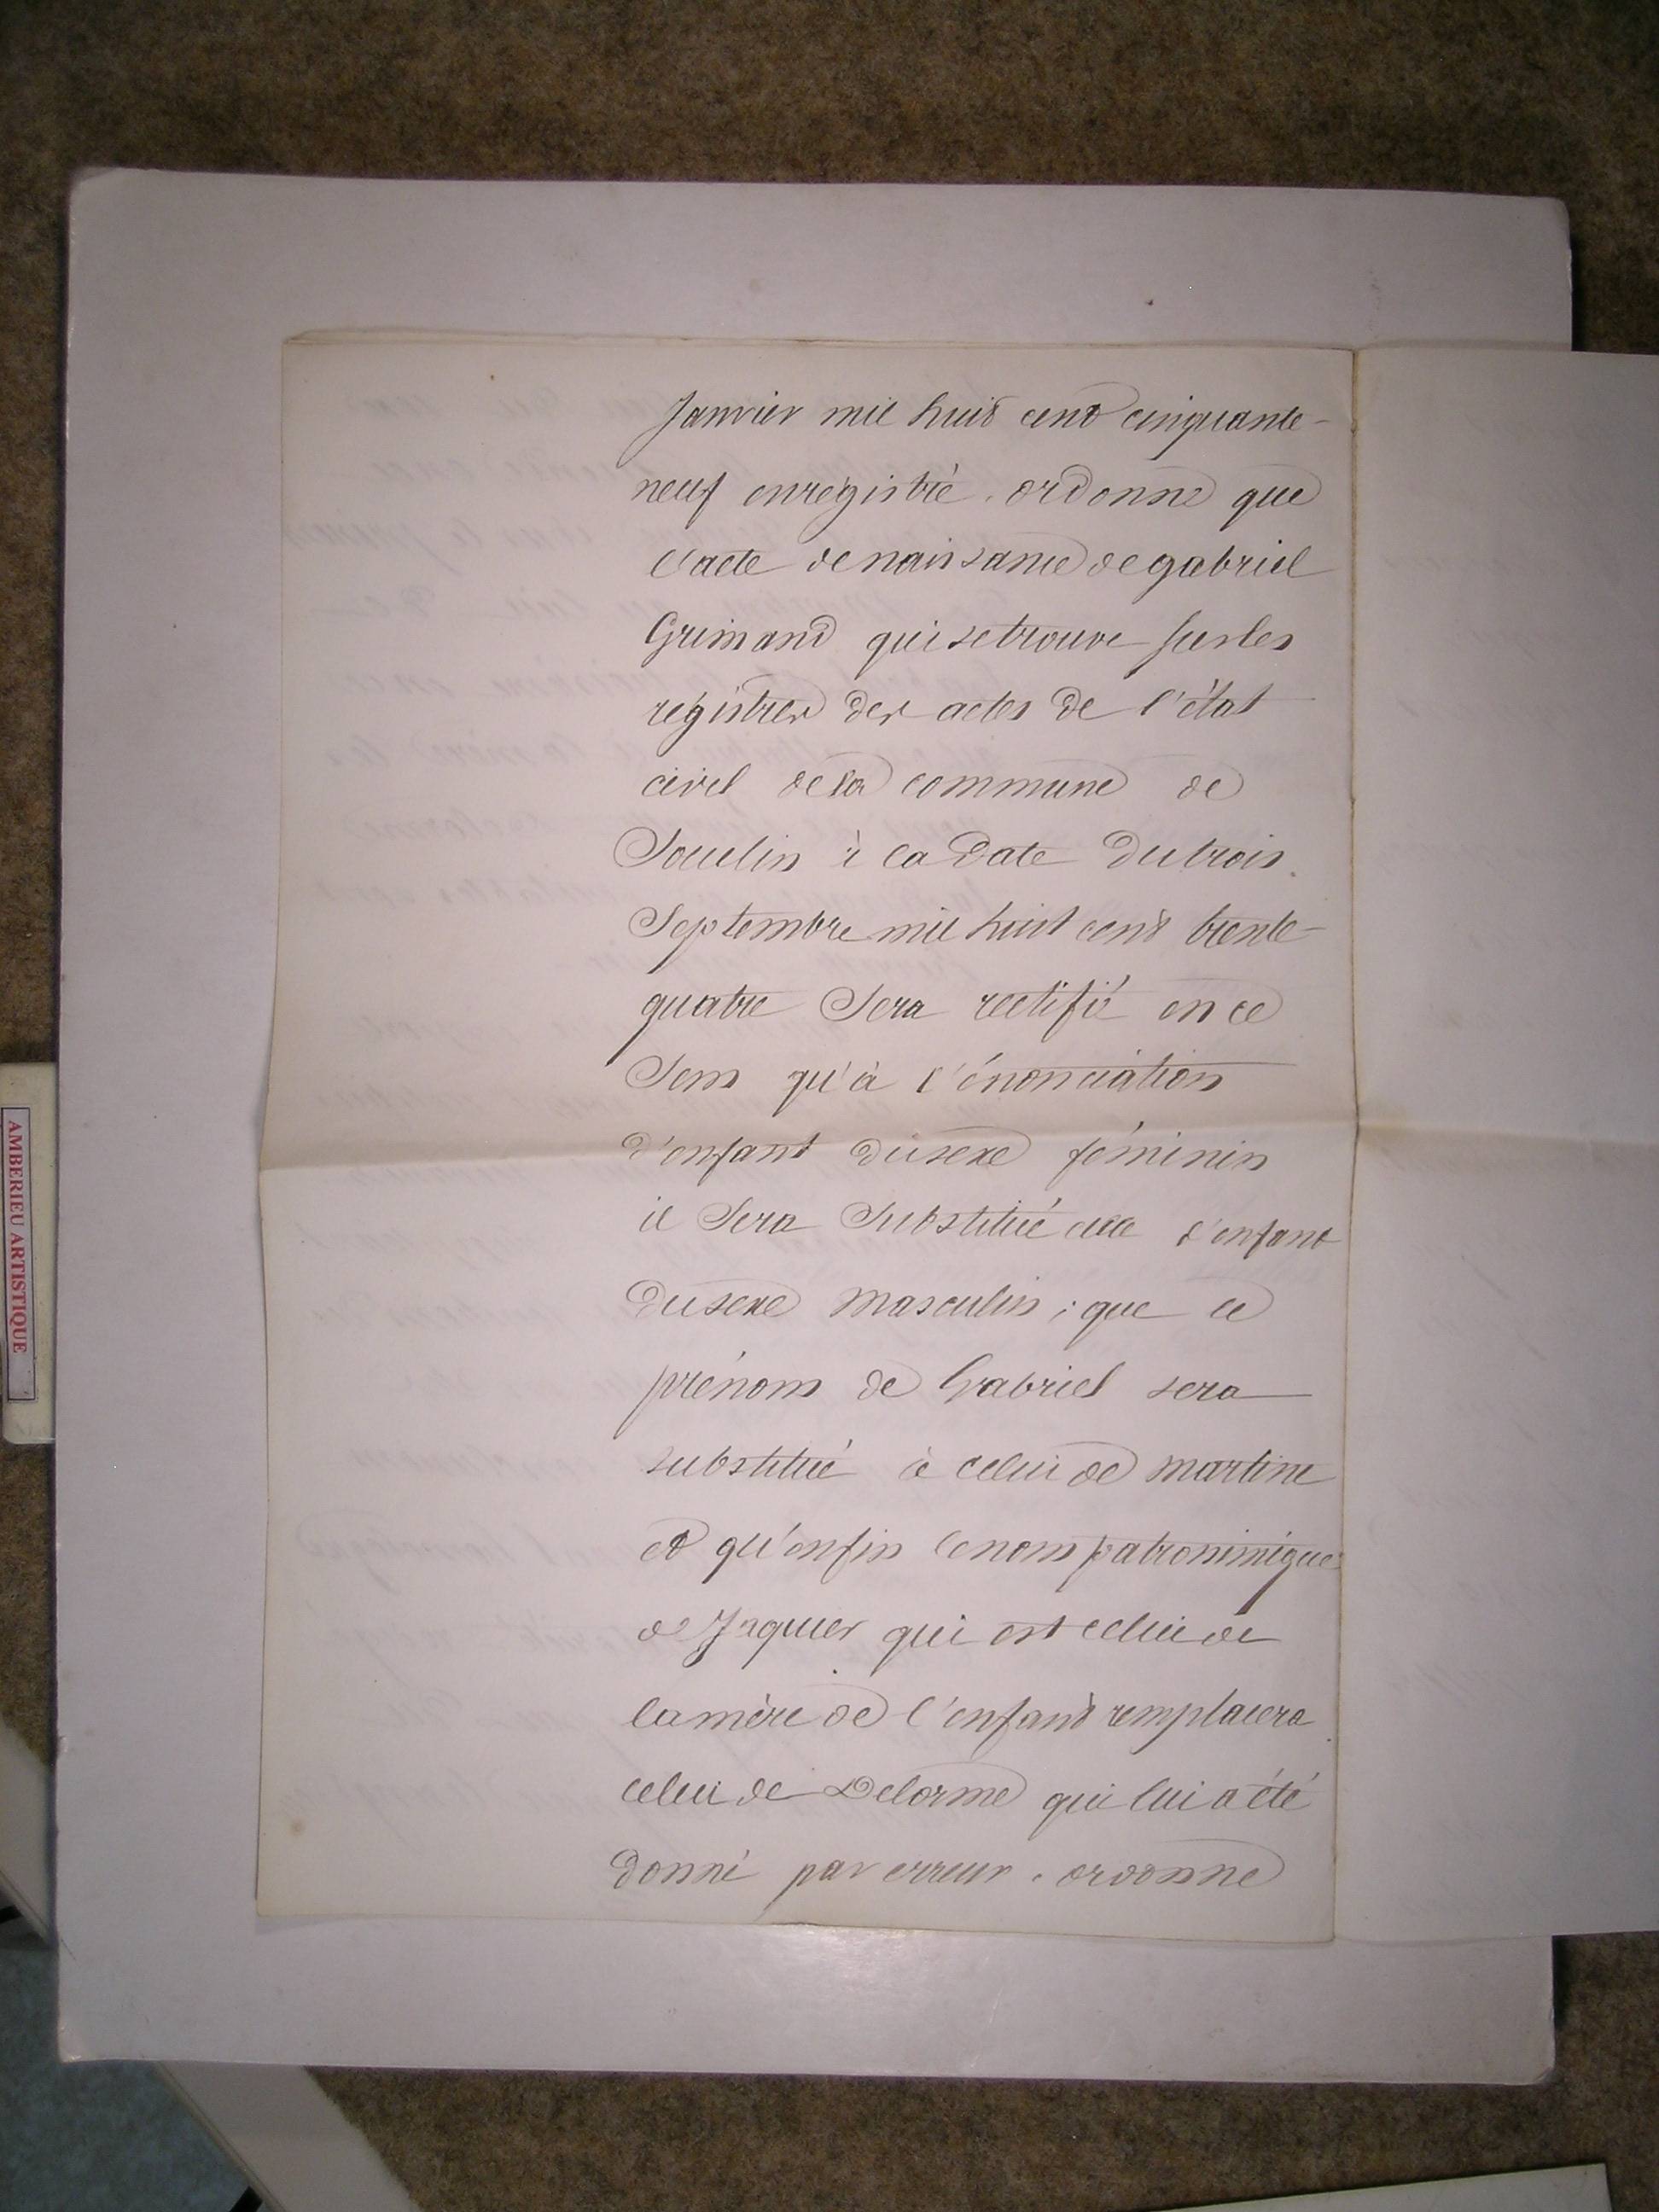 Janvier mil huit cent cinquante-
neuf enregistré. ordonne que
l'acte de naissance de gabriel
Grimand qui se trouve sur les
registres des actes de l'état
civil de la commune de
Soulin à la date du trois
Septembre mil huit cent trente-
quatre Sera rectifié en ce
Sens qu'à l'énonciation
d'enfant du sexe féminin
il Sera Substitué celle d'enfant
du sexe masculin ; que le
prénom de Gabriel sera
substitué à celui de martine
et qu'enfin le nom patronimique
de Jaquier qui est celui de
la mère de l'enfant remplacera
celui de Delorme qui lui a été
donné par erreur. ordonne
AMBERIEU ARTISTIQUE